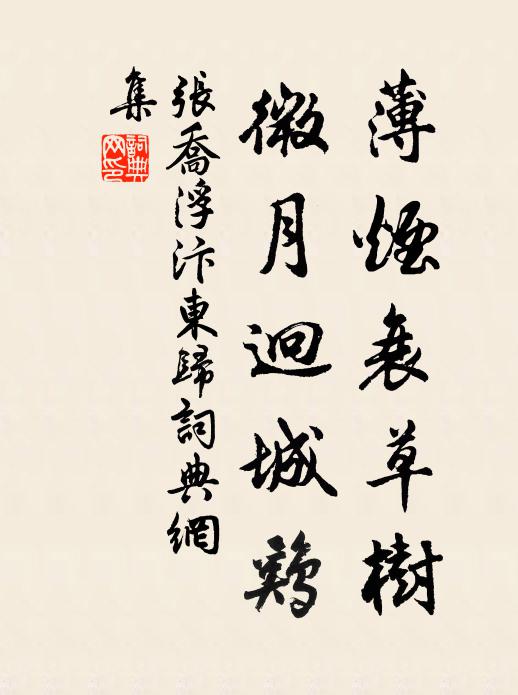 薄煙衰草樹
微月迥城鷄
張喬浮汴東歸詞典網
集
詞典網印